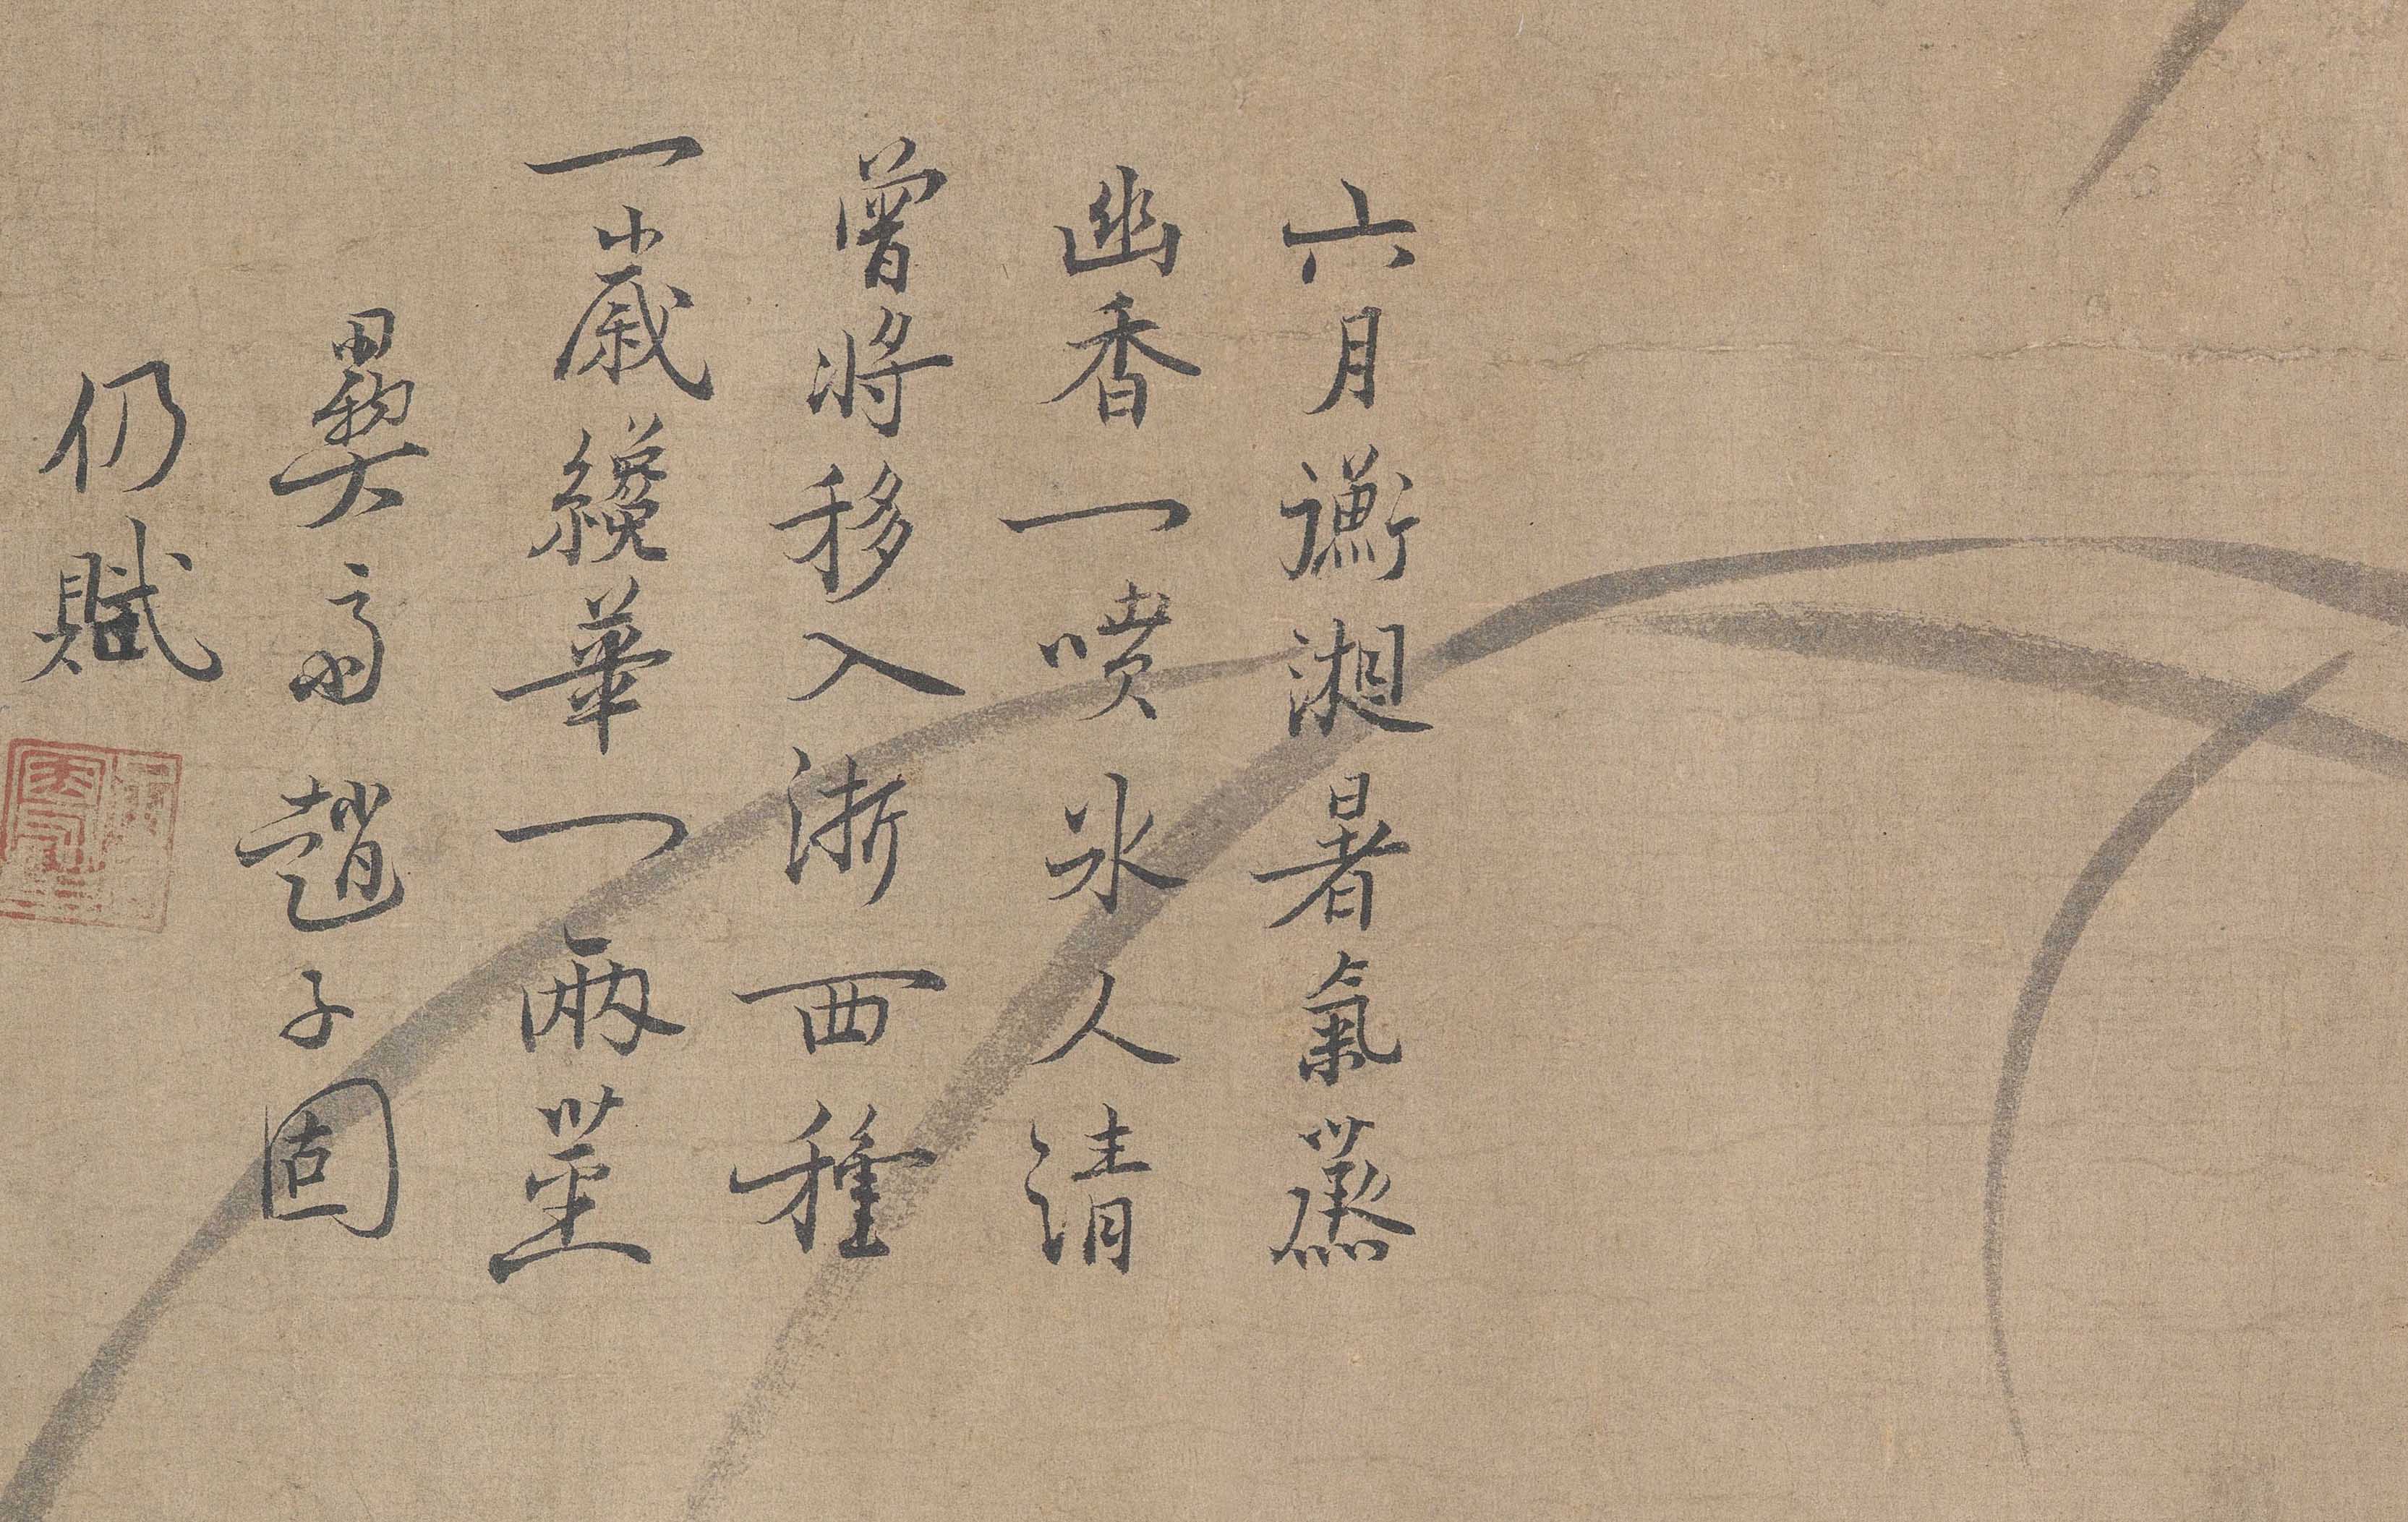 六月衡湘暑氣蒸
幽香一噴冰人清
曾將移入浙西種
一歲纔華一兩莖
彝齋趙子固
仍賦